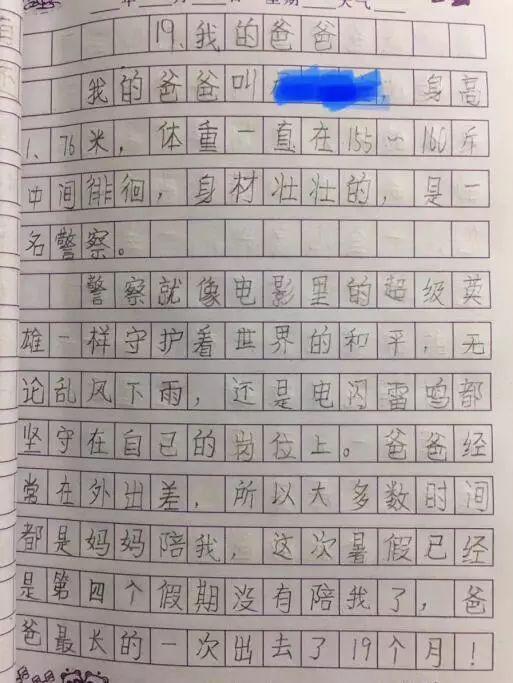 年 月 日 星期 天气
19、我的爸爸
我的爸爸叫 ，身高
1、76米，体重一直在155~160斤
中间徘徊，身材壮壮的，是一
名警察。
警察就像电影里的超级英
雄一样守护着世界的和平，无
论乱风下雨，还是电闪雷鸣都
坚守在自己的岗位上。爸爸经
常在外出差，所以大多数时间
都是妈妈陪我，这次暑假已经
是第四个假期没有陪我了，爸
爸最长的一次出去了19个月！